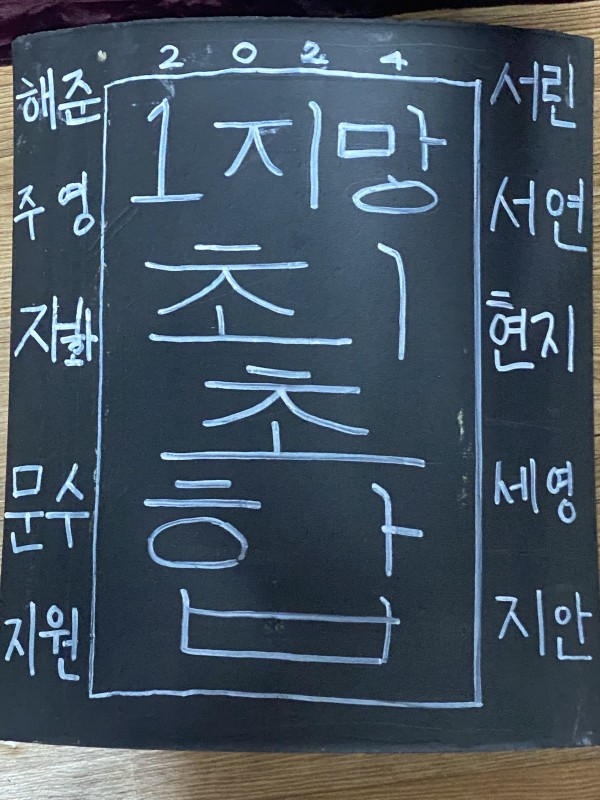 2 0 2 4
해준
주영
자화
문수
지원
1지망
최
초
합
서린
서연
현지
세영
지안